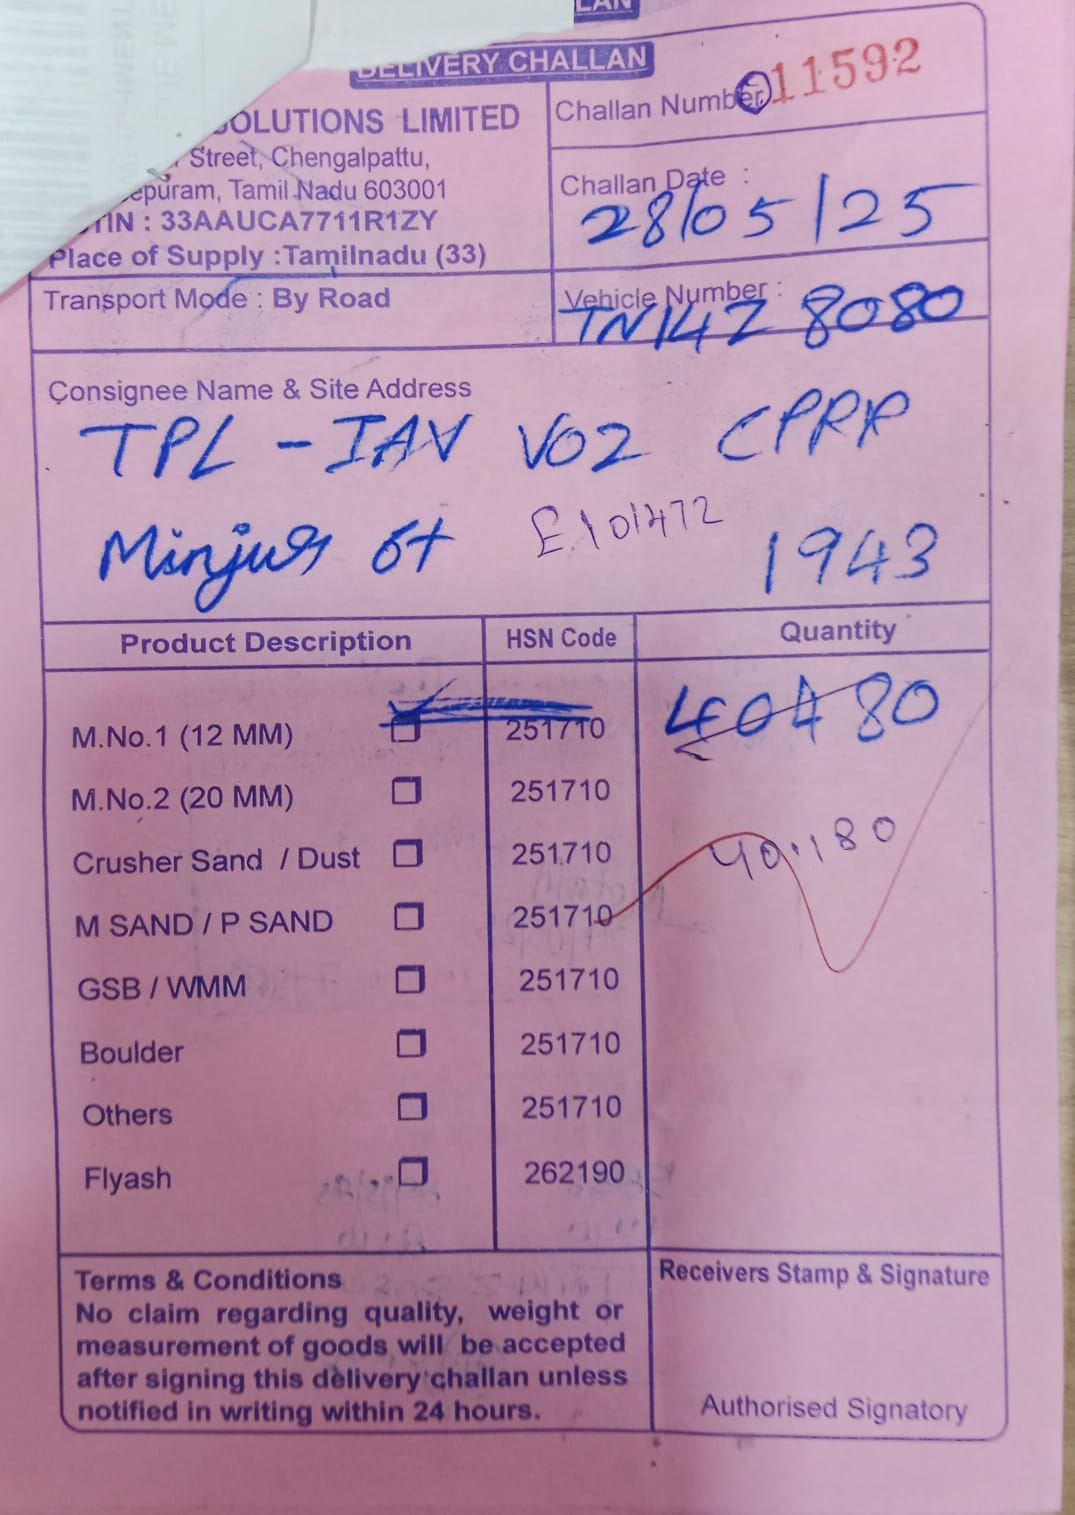 DELIVERY CHALLAN
SOLUTIONS LIMITED
Street, Chengalpattu,
epuram, Tamil Nadu 603001
TIN : 33AAUCA7711R1ZY
Place of Supply : Tamilnadu (33)
Transport Mode : By Road
Challan Number 11592
Challan Date :
28/05/25
Vehicle Number :
TN14Z 8080
Consignee Name & Site Address
TPL - IAV V02 CPRR
Minjur
E101472
1943
Product Description HSN Code Quantity
M.No.1 (12 MM) 251710 40480
M.No.2 (20 MM) 251710
Crusher Sand / Dust 251710 40.180
M SAND / P SAND 251710
GSB / WMM 251710
Boulder 251710
Others 251710
Flyash 262190
Terms & Conditions
No claim regarding quality, weight or
measurement of goods will be accepted
after signing this delivery challan unless
notified in writing within 24 hours.
Receivers Stamp & Signature
Authorised Signatory